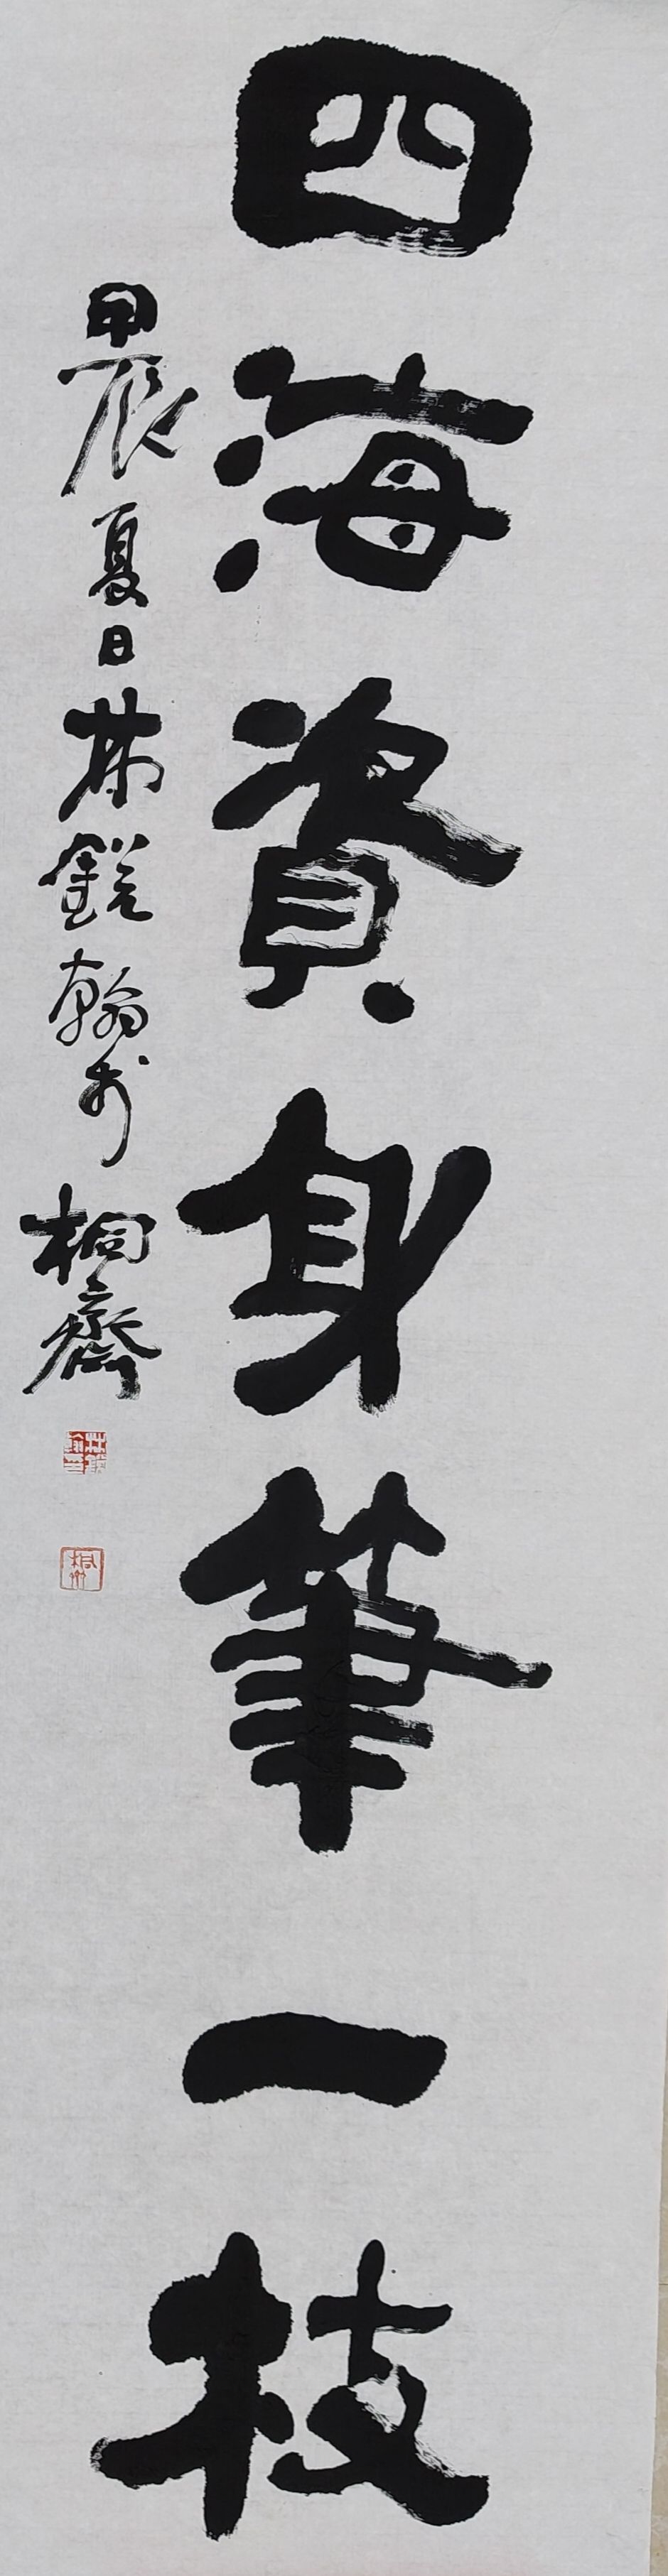 四海資身筆一枝
甲辰夏日林銳翰於桐齋